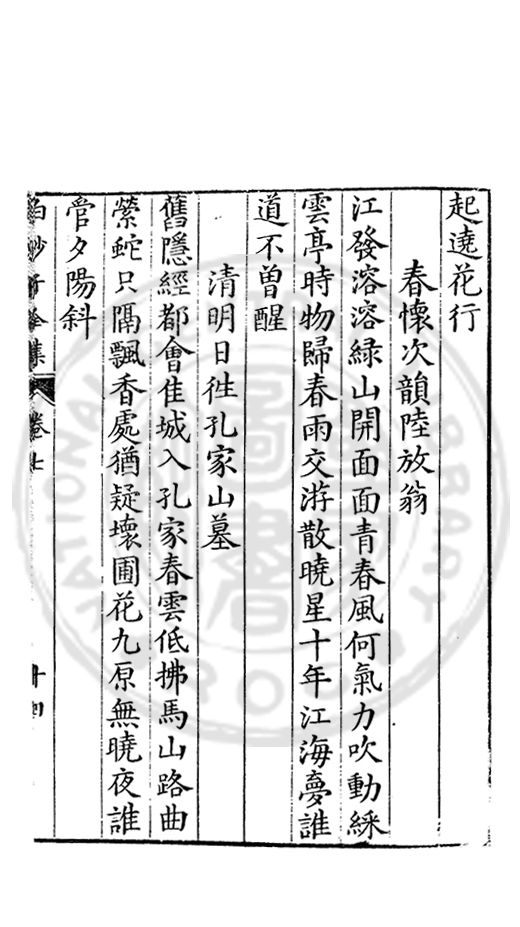 起遶花行
春懷次韻陸放翁
江發溶溶緑山開面面青春風何氣力吹動綵
雲亭時物歸春雨交游散曉星十年江海夢誰
道不曾醒
清明日徃孔家山墓
舊隱經都會佳城入孔家春雲低拂馬山路曲
縈蛇只隔飄香處猶疑壞圃花九原無曉夜誰
管夕陽斜
卷七
NATIONAL LIBRARY
圖書